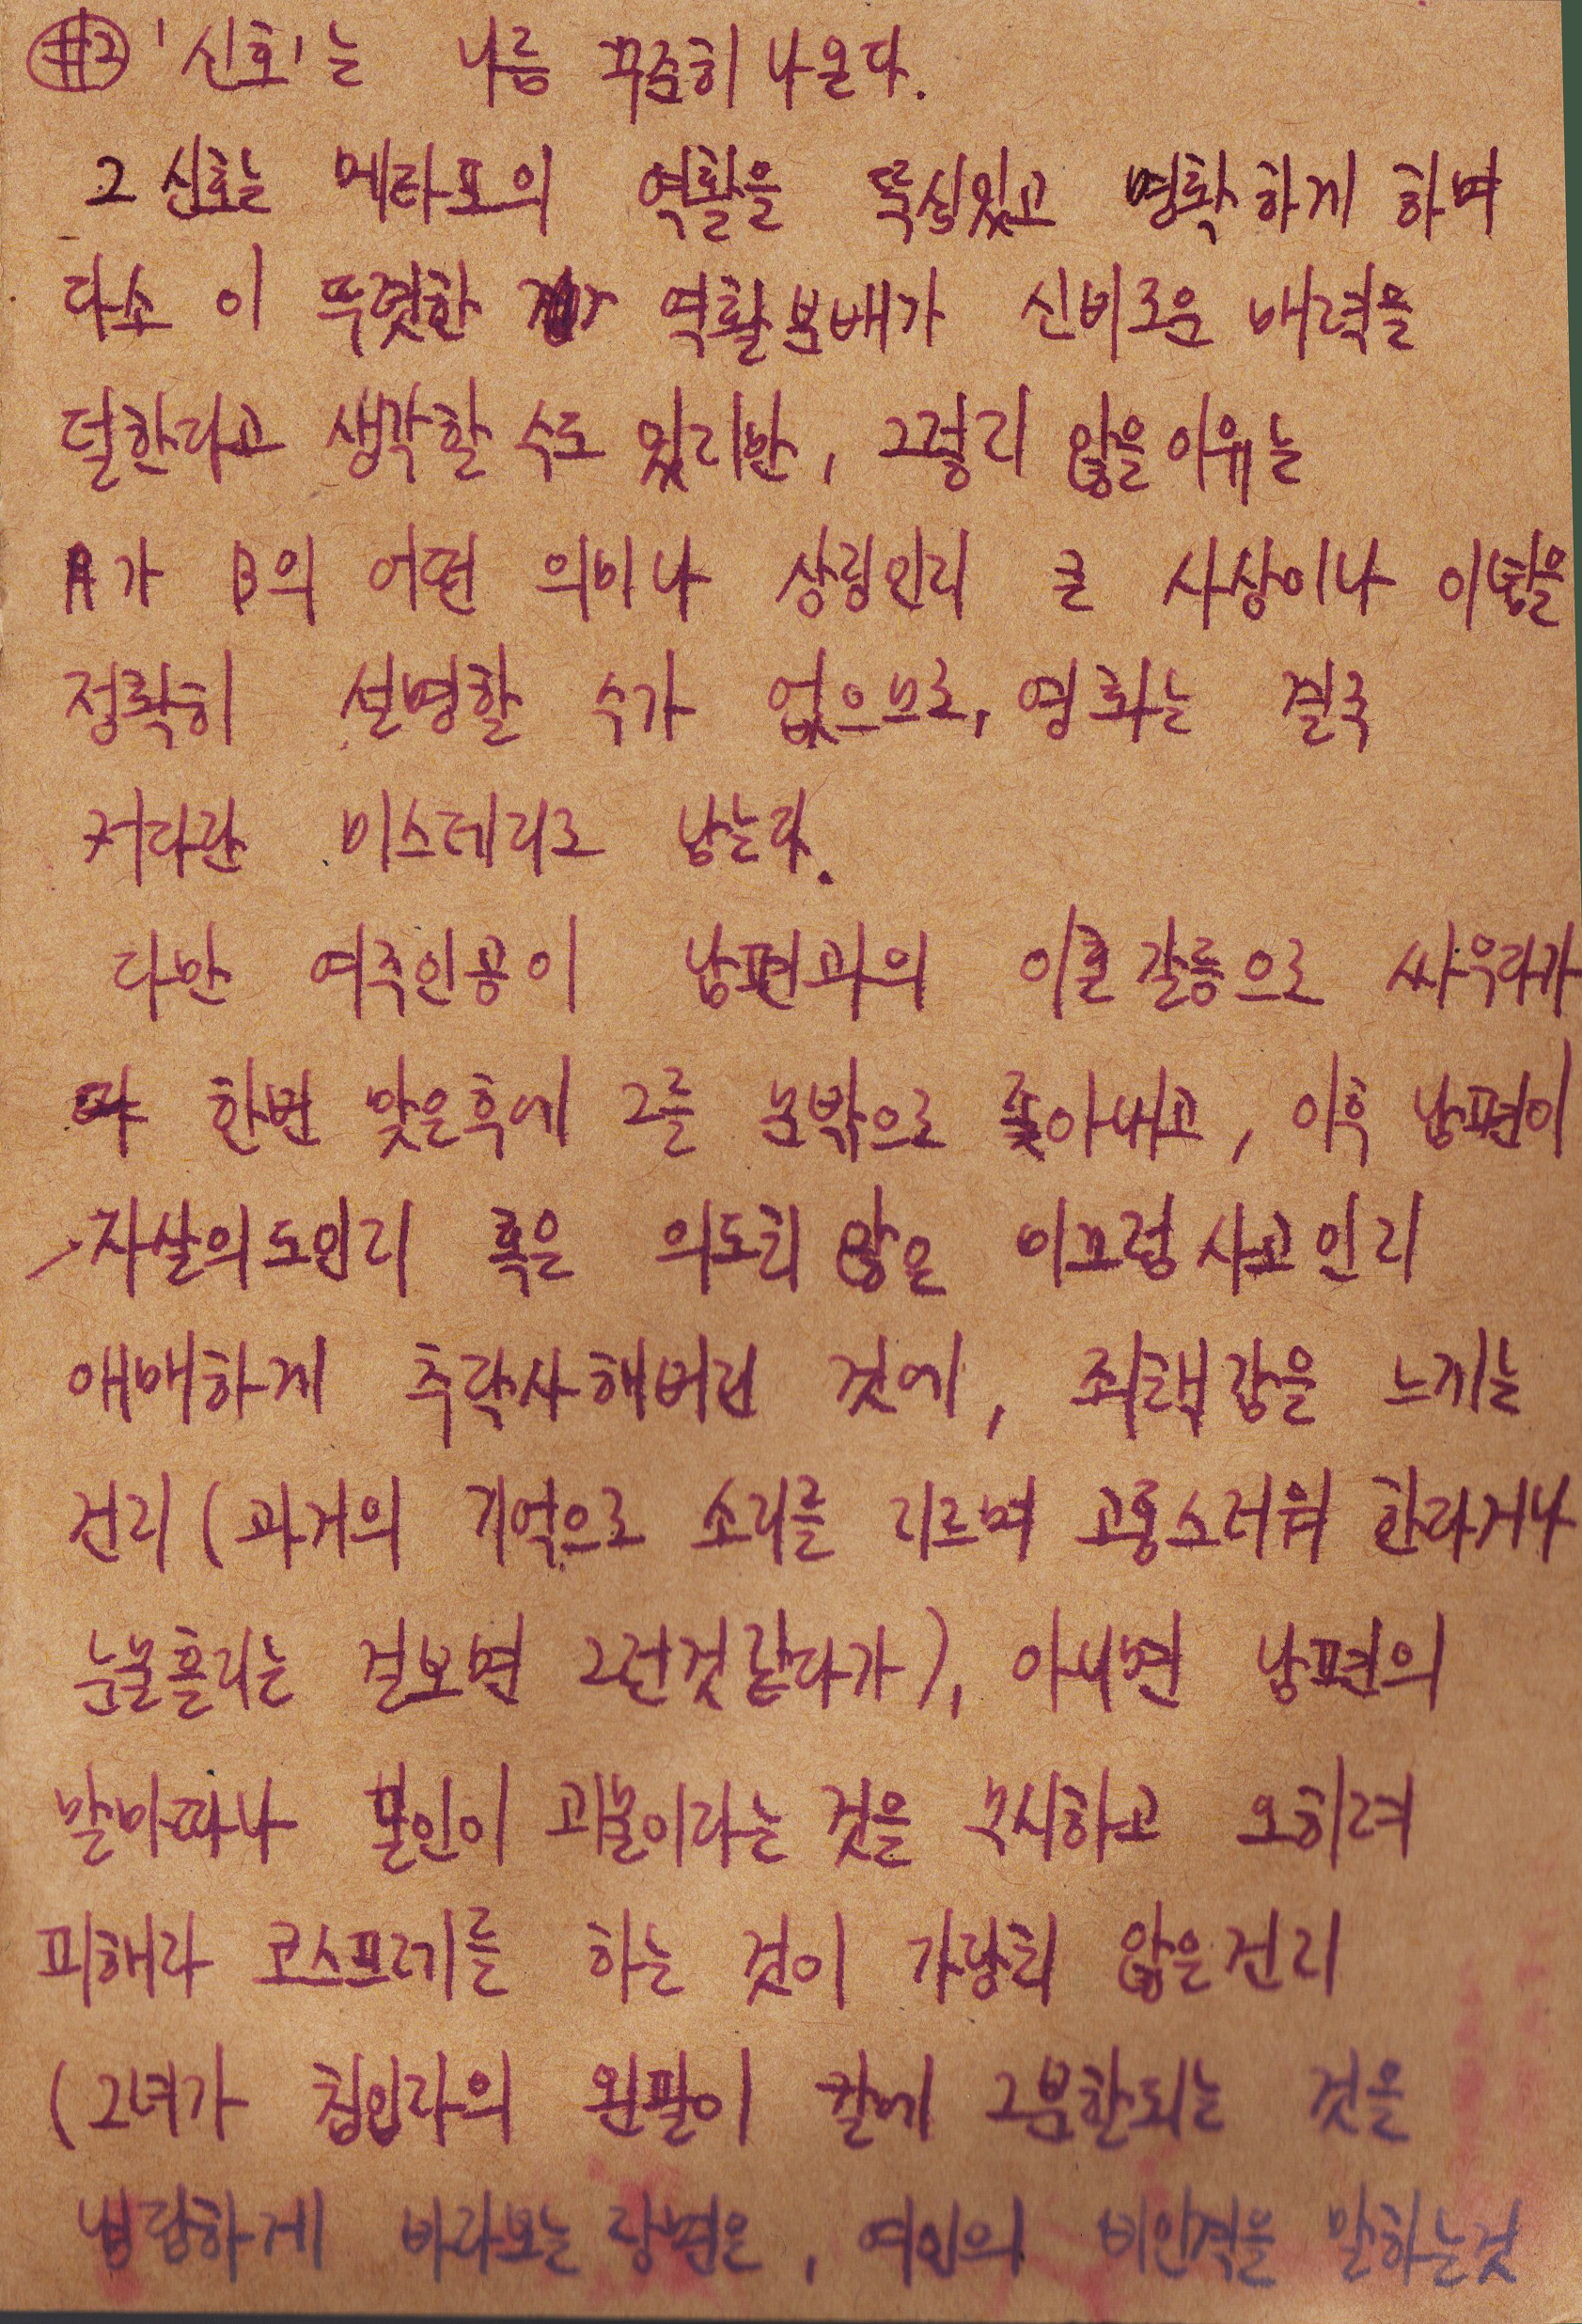 #2 '신호'는 나름 꾸준히 나온다.
그 신호는 메타포의 역활을 뚝심있고 명확하게 하며
다소 이 뚜렷한 역활분배가 신비로운 매력을
덜한다고 생각할 수도 있지만, 그렇지 않을 이유는
A가 B의 어떤 의미나 상징인지 큰 사상이나 이념을
정확히 설명할 수가 없으므로, 영화는 결국
커다란 미스테리로 남는다.
다만 여주인공이 남편과의 이혼갈등으로 싸우다가
한번 맞은후에 그를 문밖으로 쫓아내고, 이후 남편이
자살의도인지 혹은 의도치 않은 미끄럼사고인지
애매하게 추락사해버린 것에, 죄책감을 느끼는
건지 (과거의 기억으로 소리를 지르며 고통스러워 한다거나
눈물흘리는 걸보면 그런것 같다가), 아니면 남편의
말마따나 본인이 괴물이라는 것을 무시하고 오히려
피해자 코스프레를 하는 것이 가당치 않은건지
(그녀가 침입자의 왼팔이 칼에 그분한되는 것을
덤덤하게 바라보는 장면은, 여인의 비인격을 말하는것